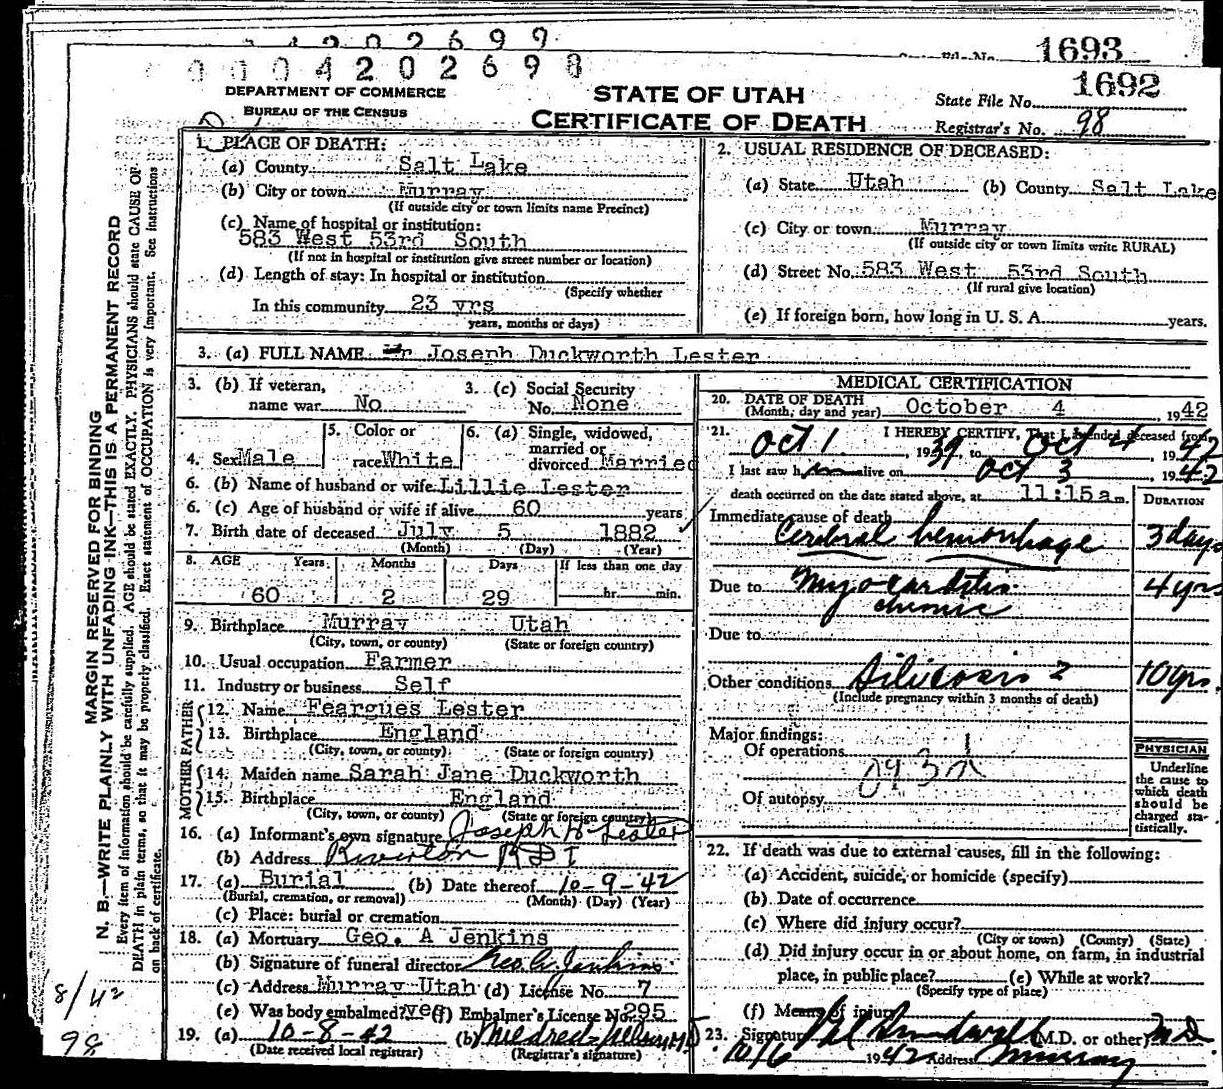 1693
0004202698
1692
DEPARTMENT OF COMMERCE
BUREAU OF THE CENSUS
STATE OF UTAH
CERTIFICATE OF DEATH
State File No.
Registrar's No. 98
MARGIN RESERVED FOR BINDING
N. B.—WRITE PLAINLY WITH UNFADING INK—THIS IS A PERMANENT RECORD
Every item of information should be carefully supplied. AGE should be stated EXACTLY. PHYSICIANS should state CAUSE OF
DEATH in plain terms, so that it may be properly classified. Exact statement of OCCUPATION is very important. See instructions
on back of certificate.
8/42
98
1. PLACE OF DEATH:
(a) County Salt Lake
(b) City or town Murray
(If outside city or town limits name Precinct)
(c) Name of hospital or institution:
583 West 53rd South
(If not in hospital or institution give street number or location)
(d) Length of stay: In hospital or institution
(Specify whether
In this community 23 yrs
years, months or days)
2. USUAL RESIDENCE OF DECEASED:
(a) State Utah (b) County Salt Lake
(c) City or town Murray
(If outside city or town limits write RURAL)
(d) Street No. 583 West 53rd South
(If rural give location)
(e) If foreign born, how long in U. S. A. years.
3. (a) FULL NAME Mr Joseph Duckworth Lester
3. (b) If veteran,
name war No
3. (c) Social Security
No. None
4. Sex Male
5. Color or
race White
6. (a) Single, widowed,
married or
divorced Married
6. (b) Name of husband or wife Lillie Lester
6. (c) Age of husband or wife if alive 60 years
7. Birth date of deceased July 5 1882
(Month) (Day) (Year)
8. AGE Years Months Days If less than one day
60 2 29 hr. min.
9. Birthplace Murray Utah
(City, town, or county) (State or foreign country)
10. Usual occupation Farmer
11. Industry or business Self
FATHER
12. Name Feargues Lester
13. Birthplace England
(City, town, or county) (State or foreign country)
MOTHER
14. Maiden name Sarah Jane Duckworth
15. Birthplace England
(City, town, or county) (State or foreign country)
16. (a) Informant's own signature Joseph H Lester
(b) Address Riverton RD 1
17. (a) Burial (b) Date thereof 10-9-42
(Burial, cremation, or removal) (Month) (Day) (Year)
(c) Place: burial or cremation
18. (a) Mortuary Geo. A Jenkins
(b) Signature of funeral director Geo. A. Jenkins
(c) Address Murray Utah (d) License No. 7
(e) Was body embalmed? yes (f) Embalmer's License No. 295
19. (a) 10-8-42 (b) Mildred Nelson M.D
(Date received local registrar) (Registrar's signature)
MEDICAL CERTIFICATION
20. DATE OF DEATH
(Month, day and year) October 4, 1942
21. I HEREBY CERTIFY, That I attended deceased from
Oct 1, 1939, to Oct 4, 1942
I last saw him alive on Oct 3 1942
death occurred on the date stated above, at 11:15am.
DURATION
Immediate cause of death
Cerebral hemorrhage 3 days
Due to Myocarditis 4 yrs
chronic
Due to
Other conditions Silicosis ? 10 yrs.
(Include pregnancy within 3 months of death)
Major findings:
Of operations
Of autopsy
PHYSICIAN
Underline
the cause to
which death
should be
charged sta-
tistically.
22. If death was due to external causes, fill in the following:
(a) Accident, suicide, or homicide (specify)
(b) Date of occurrence
(c) Where did injury occur?
(City or town) (County) (State)
(d) Did injury occur in or about home, on farm, in industrial
place, in public place? (e) While at work?
(Specify type of place)
(f) Means of injury
23. Signature (M.D. or other) M.D.
10/6 1942 Address Murray